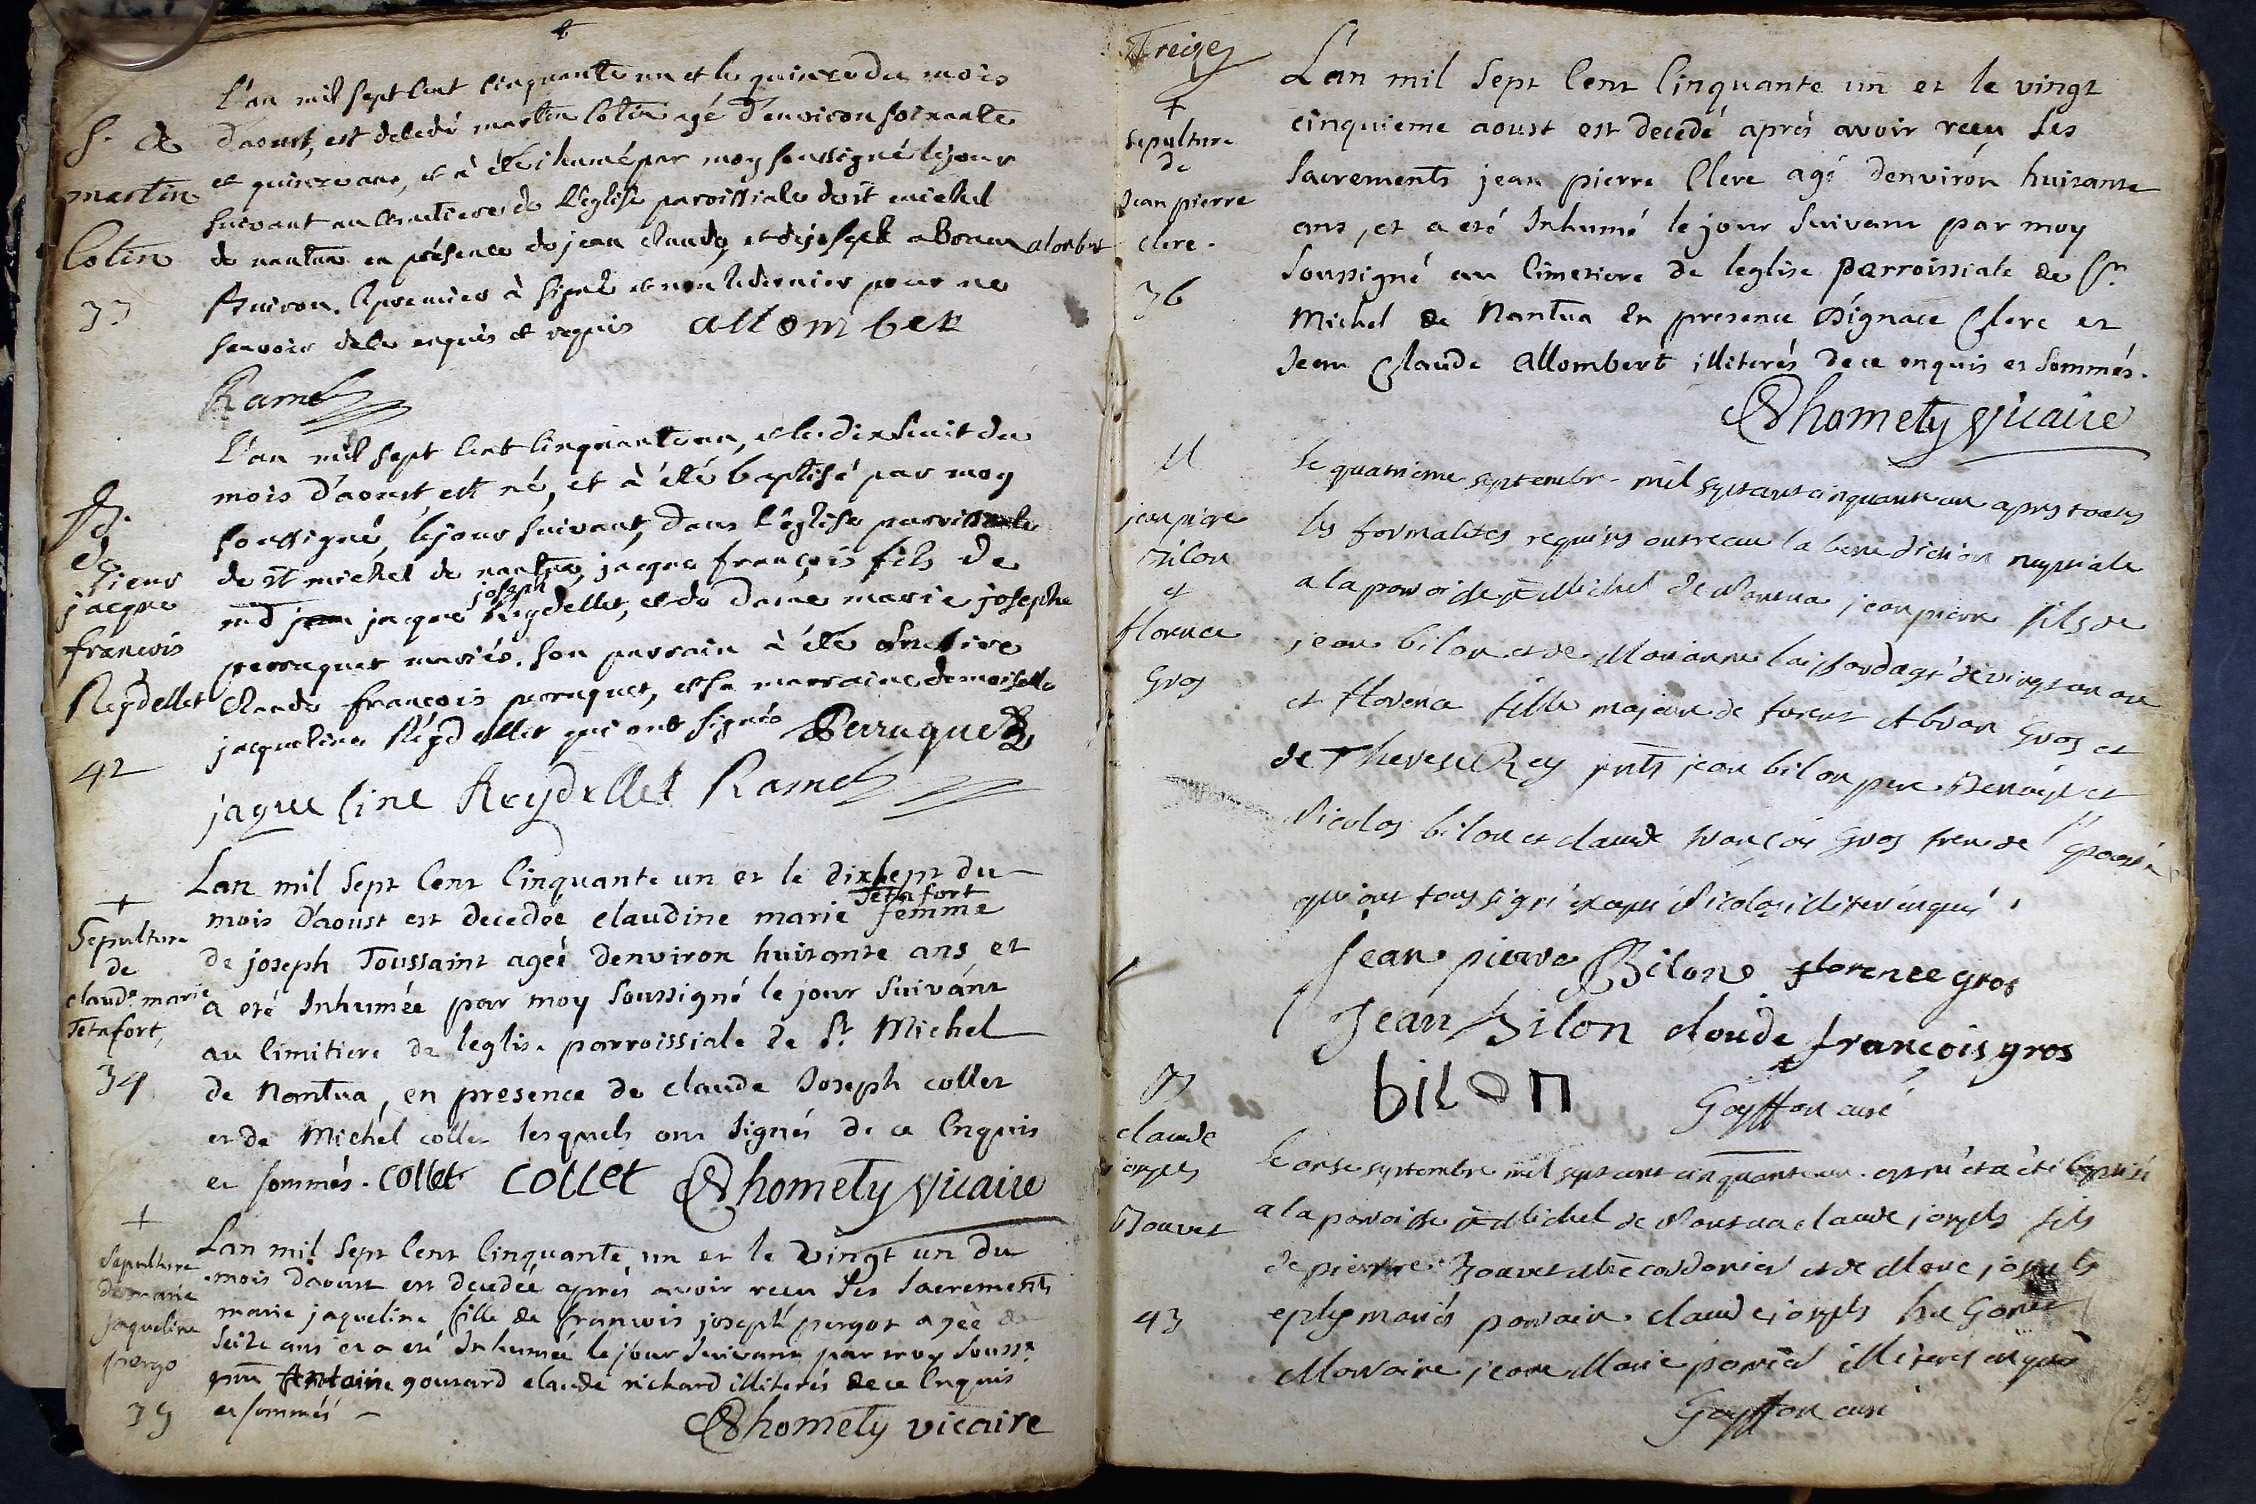 L'an mil sept cent cinquante un et le quinze du mois
d'aoust, est decedé martin Cotin agé d'environ soixante
et quinze ans, et à été ihumé par moy soussigné le jour
suivant au cimetiere de l'église paroissiale de st michel
de nantua en présence de jean claude et de joseph
Buiron. le premier à signé et non le dernier pour ne
scavoir de ce enquis et requis allomber
Ramel
S. de
martin
Cotin
33
L'an mil sept cent cinquante un, et le dix huit du
mois d'aoust est né, et à été baptisé par moy
soussigné, le jour suivant, dans l'église paroissiale
de st michel de nantua, jacque françois fils de
joseph
md jacque Reydellet, et de Dame marie josephe
perruquet mariés. son parrain à été
Claude françois perruquet, et sa marraine demoiselle
jacqueline Reydellet qui ont signés Perruquet
jaqueline Reydellet Ramel
B.
de
sieur
jacque
francois
Reydellet
42
Lan mil Sept Cent Cinquante un et le dix sept du
Tetafort
mois d'aoust est decedée claudine marie femme
de joseph Toussaint ageé denviron huitante ans et
a eté Inhumée par moy Soussigné le jour Suivant
au Cimitiere de leglise parroissiale de St Michel
de Nantua, en presence de claude Joseph collet
et de Michel collet lesquels ont signés de ce Enquis
et sommés. collet collet Rhomety vicaire
+
Sepulture
de
claude marie
Tetafort,
34
Lan mil Sept Cent Cinquante un et le vingt un du
mois daoust est decedée aprés avoir receu Ses Sacrements
marie jaqueline fille de francois joseph pergot agée de
seize ans et a eté Inhumée le jour Suivant par moy Souss.
Antoine gouvard claude richard illiterés de ce Enquis
et sommés
Rhomety vicaire
+
Sepulture
de marie
jaqueline
pergo
35
Treize
Lan mil Sept Cent Cinquante un et le vingt
cinquieme aoust est decedé aprés avoir receu Ses
Sacrements jean pierre Clerc agé denviron huitante
ans, et a eté Inhumé le jour Suivant par moy
Soussigné au Cimetiere de leglise parroissiale de St
Michel de Nantua En presence D'ignace Clerc et
Jean Claude Allombert illiterés de ce enquis et Sommés.
Rhomety vicaire
+
sepulture
de
Jean pierre
clerc.
36
Le quatrieme septembre mil sept cent cinquante un apres toutes
les formalites requises ont receu la benediction nuptiale
a la paroisse st Michel de Nantua jean pierre fils de
jean bilon et de Marianne agé de vingt un an
et florence fille majeure de Gros et
de Therese Rey pnts jean bilon pere Benoit et
Nicolas bilon et claude françois Gros frere de l'epousée
qui ont tous signé excepté Nicolas illiteré enquis.
Jean pierre Bilon florence gros
Jean Bilon cloude françois gros
bilon Goyffon curé
M
jean piere
Bilon
et
florence
Gros
Le onze septembre mil sept cent cinquante un est né et a été baptisé
a la paroisse st Michel de Nantua claude joseph fils
de pierre Bouvet Me cordonier et de Marie josephe
mariés parrain claude joseph
Marraine jeane Marie illiteres enquis
Goyffon curé
B
claude
joseph
Bouvet
43